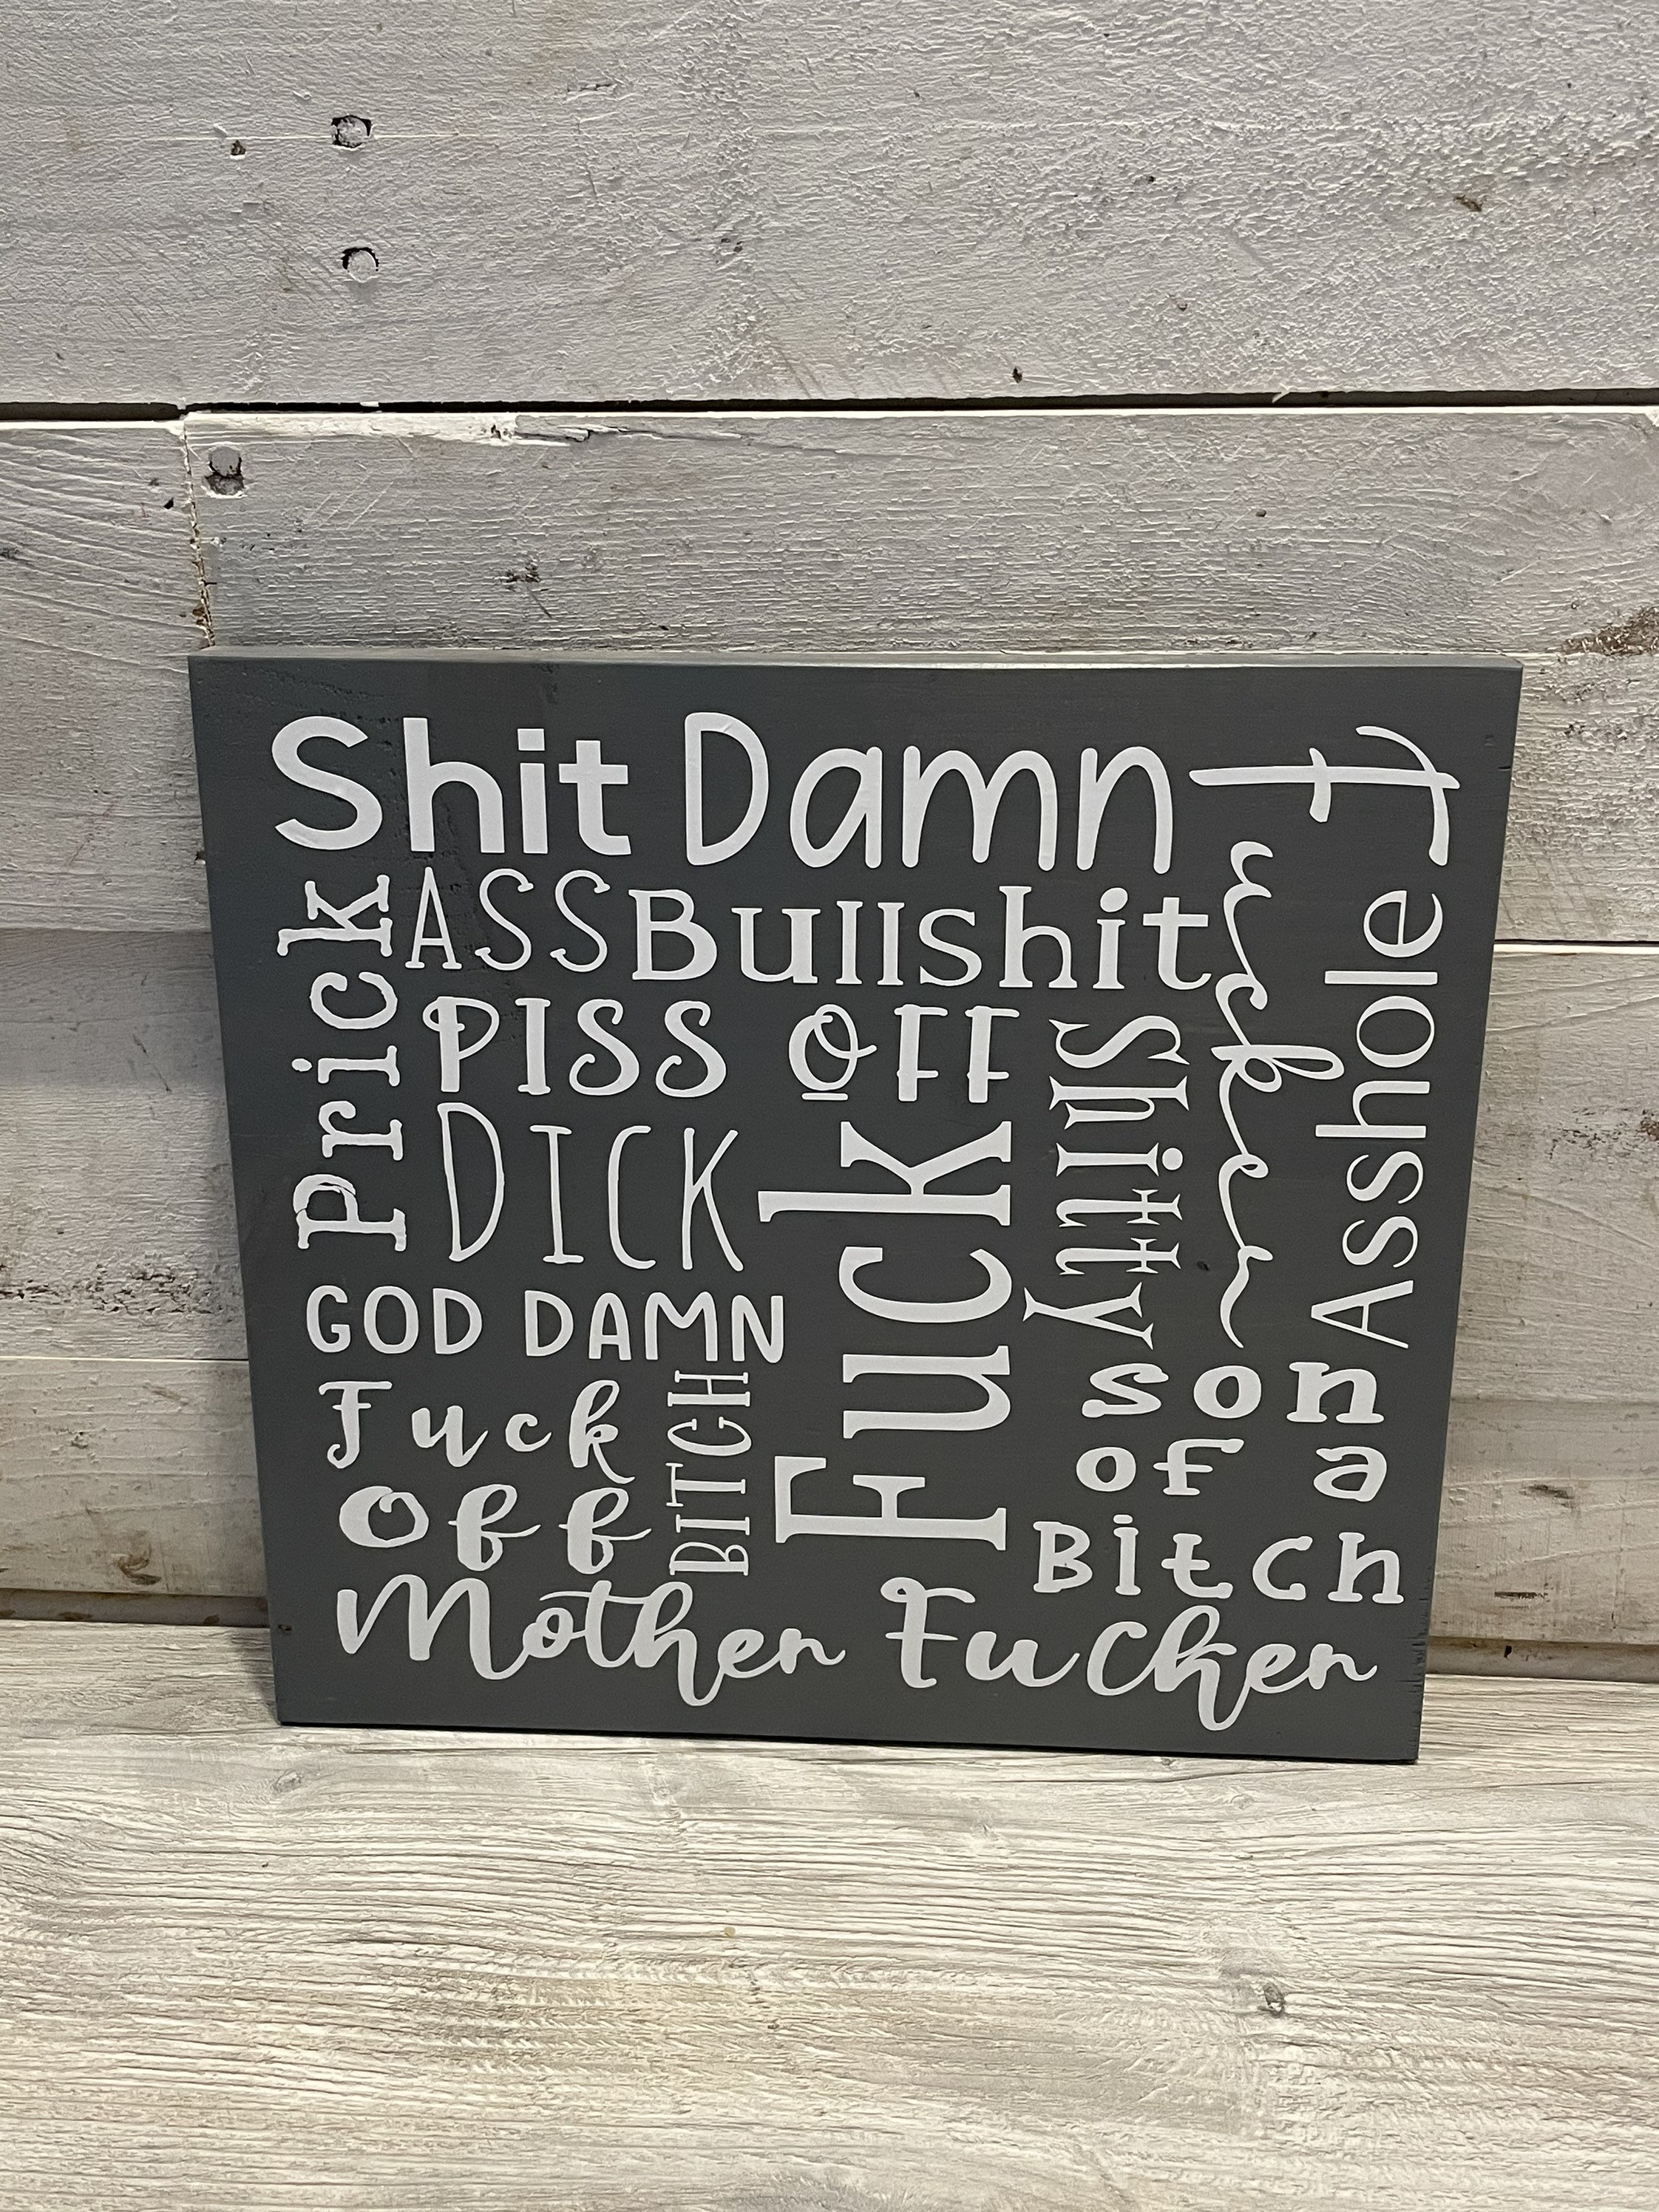 Shit Damn
Fucker
Asshole
Prick
ASS Bullshit
PISS OFF
Shitty
DICK
Fuck
GOD DAMN
Fuck
Off
BITCH
son
of a
Bitch
Mother Fucker